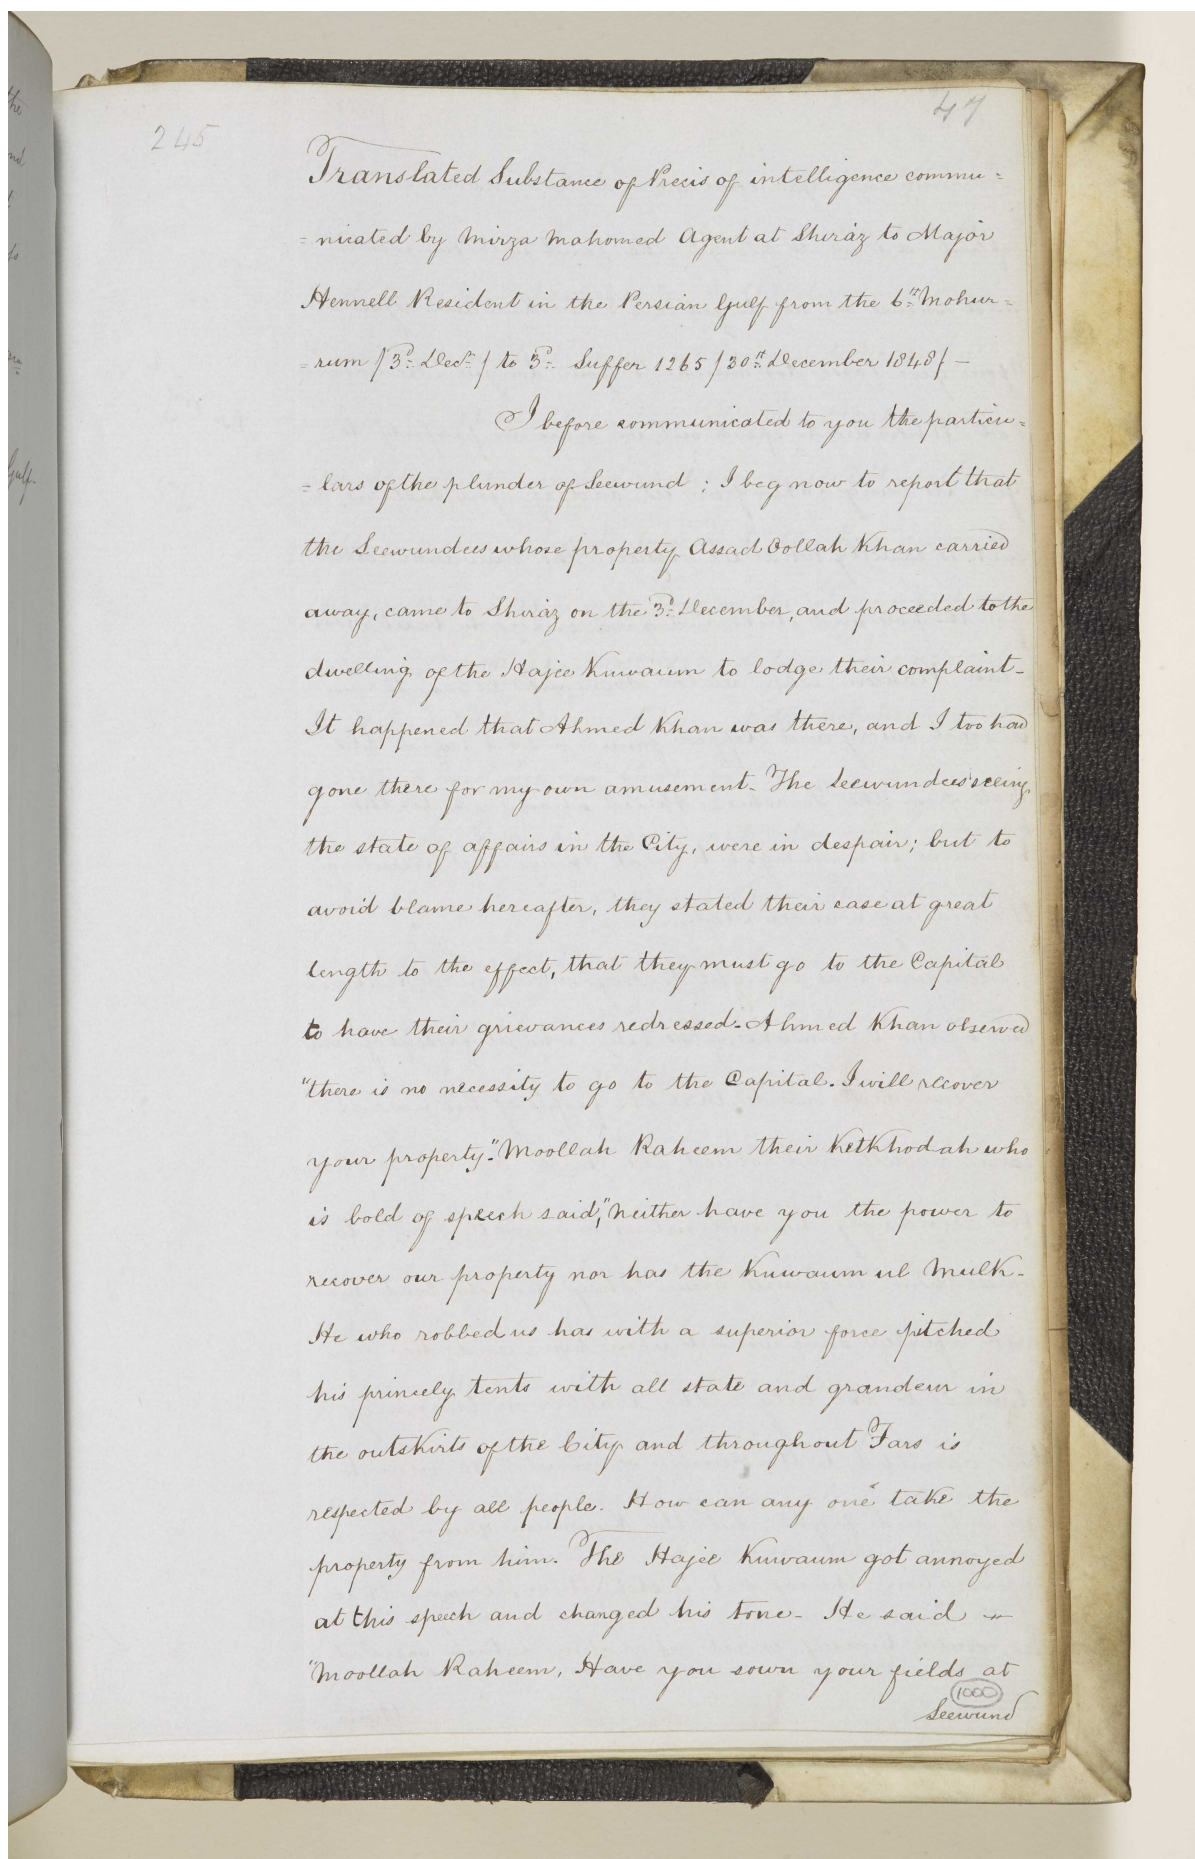 245
47
Translated Substance of Precis of intelligence commu=
=nicated by Mirza Mahomed Agent at Shiráz to Major
Hennell Resident in the Persian Gulf from the 6th Mohur=
=rum /3d Decr/ to 3d Suffer 1265 /30th December 1848/ —
I before communicated to you the particu=
=lars of the plunder of Seewund ; I beg now to report that
the Seewundees whose property Assad Oollah Khan carried
away, came to Shiráz on the 3d December, and proceeded to the
dwelling of the Hajee Kuwaum to lodge their complaint-
It happened that Ahmed Khan was there, and I too had
gone there for my own amusement. The Seewundees seeing
the state of affairs in the City, were in despair; but to
avoid blame hereafter, they stated their case at great
length to the effect, that they must go to the Capital
to have their grievances redressed. Ahmed Khan observed
"there is no necessity to go to the Capital. I will recover
your property." Moollah Raheem their Ketkhodah who
is bold of speech said, "Neither have you the power to
recover our property nor has the Kuwaum ul Mulk-
He who robbed us has with a superior force pitched
his princely tents with all state and grandeur in
the outskirts of the City and throughout Fars is
respected by all people. How can any one take the
property from him. The Hajee Kuwaum got annoyed
at this speech and changed his tone- He said —
"Moollah Raheem, Have you sown your fields at
1000
Seewund